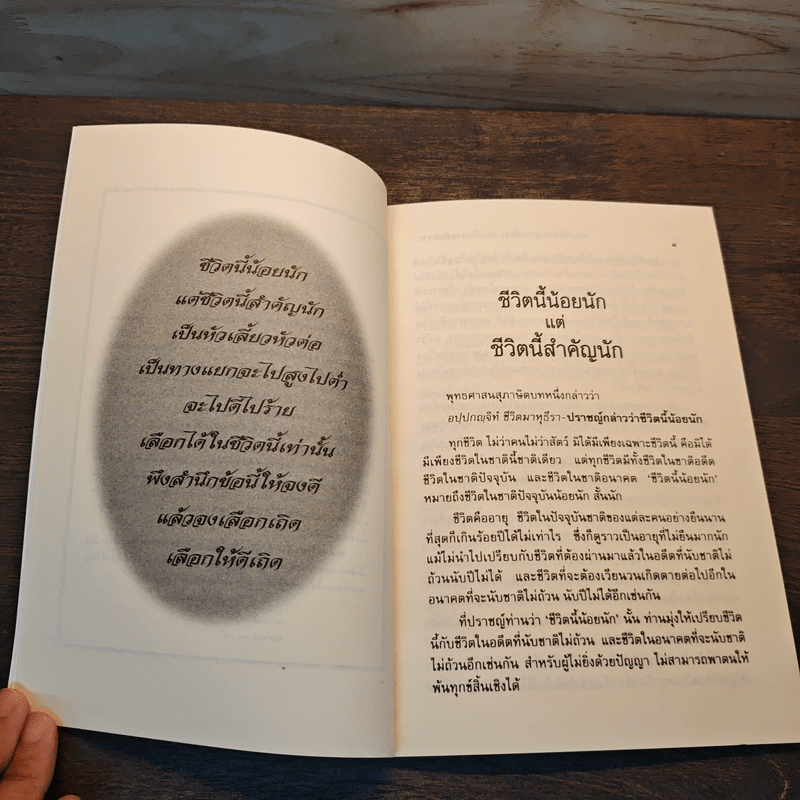 ชีวิตนี้น้อยนัก
แต่ชีวิตนี้สำคัญนัก
เป็นหัวเลี้ยวหัวต่อ
เป็นทางแยกจะไปสูงไปต่ำ
จะไปดีไปร้าย
เลือกได้ในชีวิตนี้เท่านั้น
พึงสำนึกข้อนี้ให้จงดี
แล้วจงเลือกเถิด
เลือกให้ดีเถิด
ชีวิตนี้น้อยนัก
แต่
ชีวิตนี้สำคัญนัก
พุทธศาสนสุภาษิตบทหนึ่งกล่าวว่า
อปฺปกญฺจิทํ ชีวิตมาหุธีรา-ปราชญ์กล่าวว่าชีวิตนี้น้อยนัก
ทุกชีวิต ไม่ว่าคนไม่ว่าสัตว์ มิได้มีเพียงเฉพาะชีวิตนี้ คือมิได้
มีเพียงชีวิตในชาตินี้ชาติเดียว แต่ทุกชีวิตมีทั้งชีวิตในชาติอดีต
ชีวิตในชาติปัจจุบัน และชีวิตในชาติอนาคต ‘ชีวิตนี้น้อยนัก’
หมายถึงชีวิตในชาติปัจจุบันน้อยนัก สั้นนัก
ชีวิตคืออายุ ชีวิตในปัจจุบันชาติของแต่ละคนอย่างยืนนาน
ที่สุดก็เกินร้อยปีได้ไม่เท่าไร ซึ่งก็ดูราวเป็นอายุที่ไม่ยืนมากนัก
แม้ไม่นำไปเปรียบกับชีวิตที่ต้องผ่านมาแล้วในอดีตที่นับชาติไม่
ถ้วนนับปีไม่ได้ และชีวิตที่จะต้องเวียนวนเกิดตายต่อไปอีกใน
อนาคตที่จะนับชาติไม่ถ้วน นับปีไม่ได้อีกเช่นกัน
ที่ปราชญ์ท่านว่า ‘ชีวิตนี้น้อยนัก’ นั้น ท่านมุ่งให้เปรียบชีวิต
นี้กับชีวิตในอดีตที่นับชาติไม่ถ้วน และชีวิตในอนาคตที่จะนับชาติ
ไม่ถ้วนอีกเช่นกัน สำหรับผู้ไม่ยิ่งด้วยปัญญา ไม่สามารถพาตนให้
พ้นทุกข์สิ้นเชิงได้